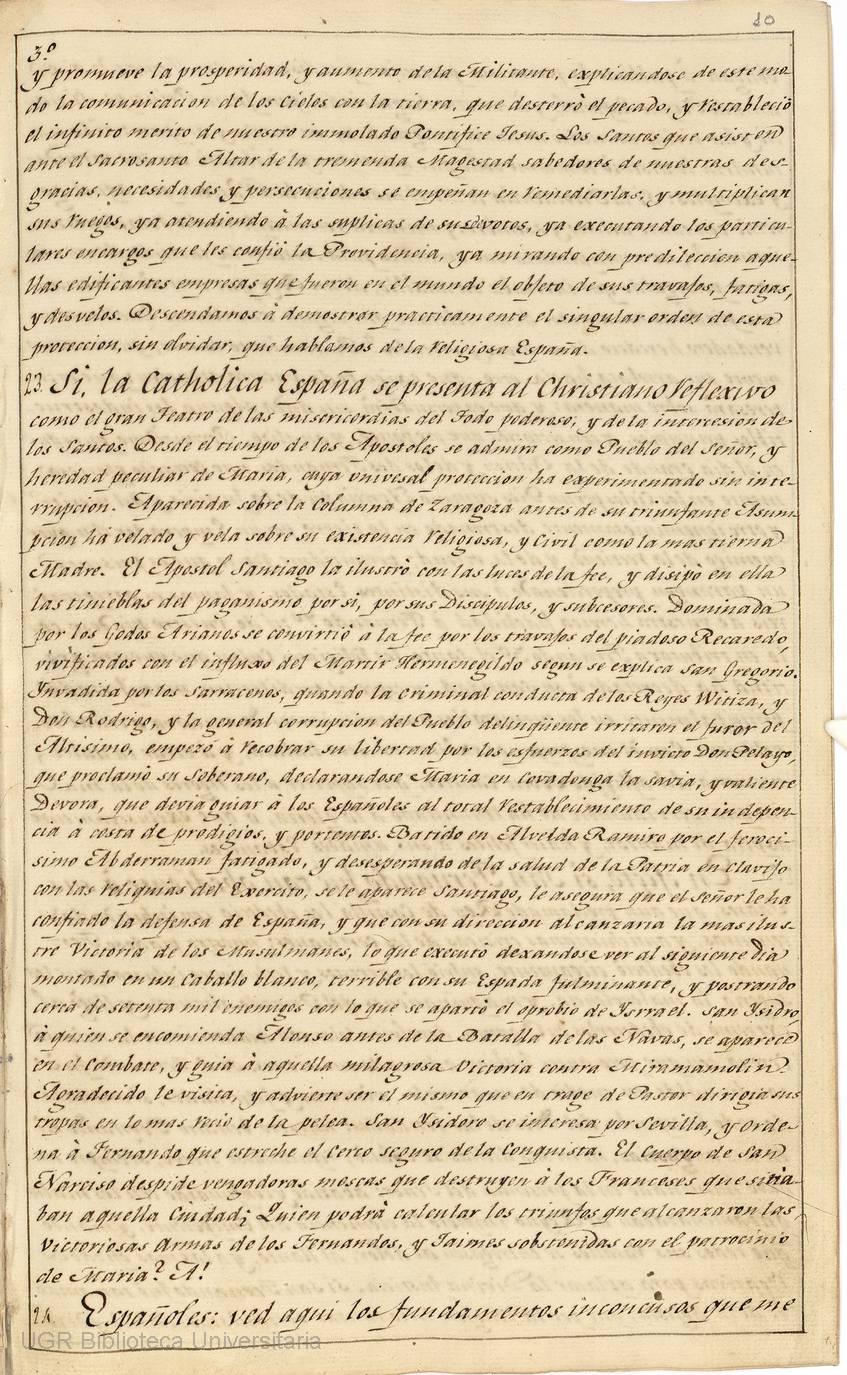 10
3.º
y promueve la prosperidad, y aumento de la Militante, explicandose de este mo-
do la comunicacion de los Cielos con la tierra, que desterrò el pecado, y restableciò
el infinito merito de nuestro immolado Pontifice Jesus. Los Santos que asisten
ante el Sacrosanto Altar de la tremenda Magestad sabedores de nuestras des-
gracias, necesidades y persecuciones se empeñan en remediarlas, y multiplican
sus ruegos, ya atendiendo à las suplicas de sus devotos, ya executando los particu-
lares encargos que les confiò la Providencia, ya mirando con predileccion aque-
llas edificantes empresas que fueron en el mundo el objeto de sus travajos, fatigas,
y desvelos. Descendamos à demostrar practicamente el singular orden de esta
proteccion, sin olvidar, que hablamos de la religiosa España.
23. Si, la Catholica España se presenta al Christiano reflexivo
como el gran Teatro de las misericordias del Todo poderoso, y de la intercesion de
los Santos. Desde el tiempo de los Apostoles se admira como Pueblo del Señor, y
heredad peculiar de Maria, cuya univesal proteccion ha experimentado sin inte-
rrupcion. Aparecida sobre la Columna de Zaragoza antes de su triunfante Asum-
pcion hà velado y vela sobre su existencia religiosa, y Civil como la mas tierna
Madre. El Apostol Santiago la ilustrò con las luces de la fee, y disipò en ella
las tinieblas del paganismo por si, por sus Discipulos, y subcesores. Dominada
por los Godos Arianos se convirtiò à la fee por los travajos del piadoso Recaredo,
vivificados con el influxo del Martir Hermenegildo segun se explica San Gregorio.
Invadida por los Sarracenos, quando la criminal conducta de los Reyes Witiza, y
Don Rodrigo, y la general corrupcion del Pueblo delinqüente irritaron el furor del
Altisimo, empezò à recobrar su libertad por los esfuerzos del invicto Don Pelayo,
que proclamò su Soberano, declarandose Maria en Covadonga la savia, y valiente
Devora, que devia guiar à los Españoles al total restablecimiento de su indepen-
cia à costa de prodigios, y portentos. Batido en Alvelda Ramiro por el feroci-
simo Abderraman fatigado, y desesperando de la salud de la Patria en Clavijo
con las reliquias del Exercito, se le aparece Santiago, le asegura que el Señor le ha
confiado la defensa de España, y que con su direccion alcanzaria la mas ilus-
tre Victoria de los Musulmanes, lo que executò dexandose ver al siguiente dia
montado en un Caballo blanco, terrible con su Espada fulminante, y postrando
cerca de setenta mil enemigos con lo que se apartò el oprobio de Isrrael. San Ysidro,
à quien se encomienda Alonso antes de la Batalla de las Navas, se aparece
en el Combate, y guia à aquella milagrosa Victoria contra Miramamolin.
Agradecido le visita, y advierte ser el mismo que en trage de Pastor dirigia sus
tropas en lo mas recio de la pelea. San Ysidoro se interesa por Sevilla, y orde-
na à Fernando que estreche el Cerco seguro de la Conquista. El Cuerpo de San
Narciso despide vengadoras moscas que destruyen à los Franceses que sitia-
ban aquella Ciudad; Quien podrà calcular los triunfos que alcanzaron las
Victoriosas Armas de los Fernandos, y Jaimes sobstenidas con el patrocinio
de Maria? A!
24. Españoles: ved aqui los fundamentos inconcusos que me
UGR Biblioteca Universitaria